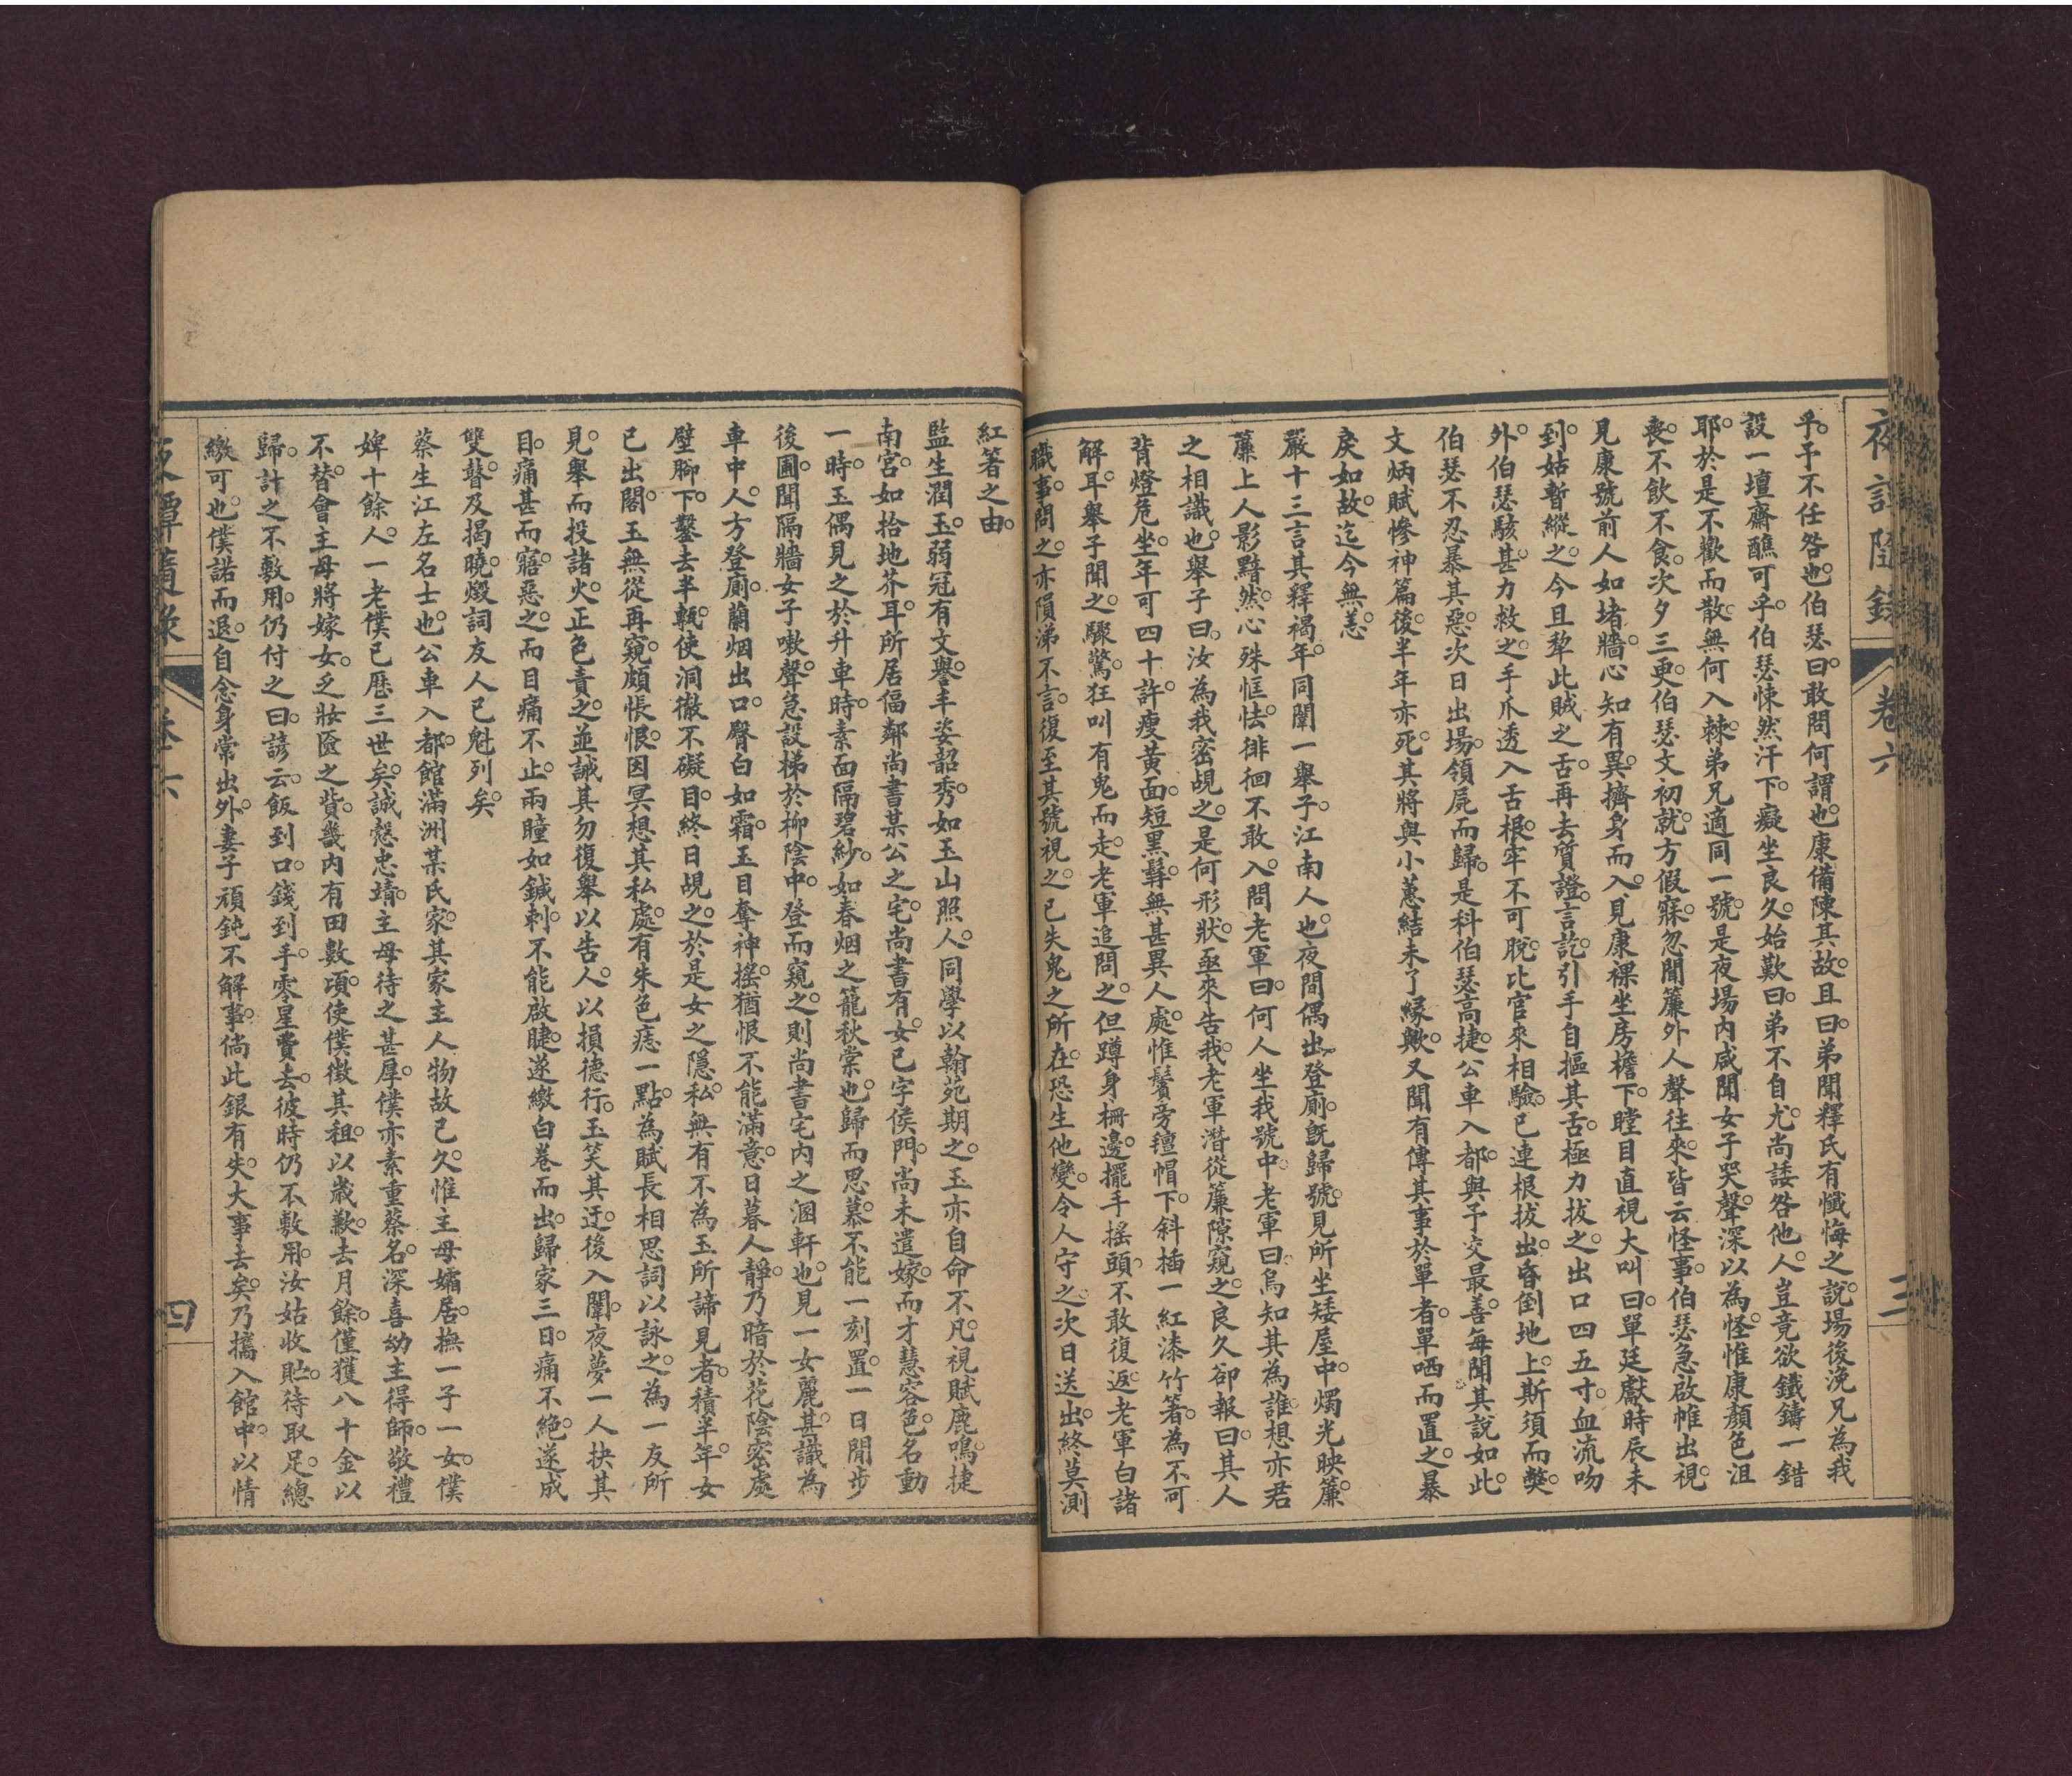 夜譚隨錄
卷六
三
乎。予不任咎也。伯瑟曰。敢問何謂也。康備陳其故。且曰。弟聞釋氏有懺悔之說。場後浼兄為我
設一壇齋醮可乎。伯瑟悚然汗下。癡坐良久。始歎曰。弟不自尤。尚諉咎他人。豈竟欲鐵鑄一錯
耶。於是不歡而散。無何入棘。弟兄適同一號。是夜場內咸聞女子哭聲。深以為怪。惟康顏色沮
喪。不飲不食。次夕三更。伯瑟文初就。方假寐。忽聞簾外人聲往來。皆云怪事。伯瑟急啟帷出視。
見康號前人如堵牆。心知有異。擠身而入。見康裸坐房檐下。瞠目直視大叫曰。單廷獻時辰未
到。姑暫縱之。今且犂此賊之舌。再去質證。言訖。引手自摳其舌。極力拔之。出口四五寸。血流吻
外。伯瑟駭甚。力救之。手爪透入舌根。牢不可脫。比官來相驗。已連根拔出。昏倒地上。斯須而獘。
伯瑟不忍暴其惡。次日出場。領屍而歸。是科伯瑟高捷。公車入都。與予交最善。每聞其說如此。
文炳賦慘神篇。後半年亦死。其將與小蕙結未了緣歟。又聞有傳其事於單者。單哂而置之。暴
戾如故。迄今無恙。
嚴十三言其釋褐年。同闈一舉子。江南人也。夜間偶出登廁。旣歸號。見所坐矮屋中。燭光映簾。
簾上人影黯然。心殊恇怯。徘徊不敢入。問老軍曰。何人坐我號中。老軍曰。烏知其為誰。想亦君
之相識也。舉子曰。汝為我密覘之。是何形狀。亟來告我。老軍潛從簾隙窺之。良久卻報曰。其人
背燈危坐。年可四十許。瘦黃面。短黑髯。無甚異人處。惟鬢旁氊帽下。斜插一紅漆竹箸。為不可
解耳。舉子聞之。驟驚。狂叫有鬼而走。老軍追問之。但蹲身柵邊。擺手搖頭。不敢復返。老軍白諸
職事。問之。亦隕涕不言。復至其號視之。已失鬼之所在。恐生他變。令人守之。次日送出。終莫測
紅箸之由。
監生潤玉。弱冠有文譽。丰姿韶秀。如玉山照人。同學以翰苑期之。玉亦自命不凡。視賦鹿鳴捷
南宮。如拾地芥耳。所居偪鄰尚書某公之宅。尚書有女。已字侯門。尚未遣嫁。而才慧容色。名動
一時。玉偶見之於升車時。素面隔碧紗。如春烟之籠秋棠也。歸而思慕。不能一刻置。一日閒步
後圃。聞隔牆女子嗽聲。急設梯於柳陰中。登而窺之。則尚書宅內之溷軒也。見一女麗甚。識為
車中人。方登廁。蘭烟出口。臀白如霜。玉目奪神搖。猶恨不能滿意。日暮人靜。乃暗於花陰密處
壁腳下。鑿去半甎。使洞徹不礙目。終日覘之。於是女之隱私。無有不為玉所諦見者。積半年。女
已出閣。玉無從再窺。頗悵恨。因冥想其私處。有朱色痣一點。為賦長相思詞以詠之。為一友所
見。舉而投諸火。正色責之。並誡其勿復舉以告人。以損德行。玉笑其迂。後入闈。夜夢一人抉其
目。痛甚而寤。惡之。而目痛不止。兩瞳如鍼刺。不能啟睫。遂繳白卷而出。歸家三日。痛不絕。遂成
雙瞽。及揭曉。燬詞友人已魁列矣
蔡生江左名士也。公車入都。館滿洲某氏家。其家主人物故已久。惟主母孀居。撫一子一女。僕
婢十餘人。一老僕已歷三世矣。誠慤忠靖。主母待之甚厚。僕亦素重蔡名。深喜幼主得師。敬禮
不替。會主母將嫁女。乏妝奩之貲。畿內有田數項。使僕徵其租。以歲歉。去月餘。僅獲八十金以
歸。計之不敷用。仍付之曰。諺云。飯到口。錢到手。零星費去。彼時仍不敷用。汝姑收貯。待取足。總
繳可也。僕諾而退。自念身常出外。妻子頑鈍不解事。倘此銀有失。大事去矣。乃攜入館中。以情
卷六
四